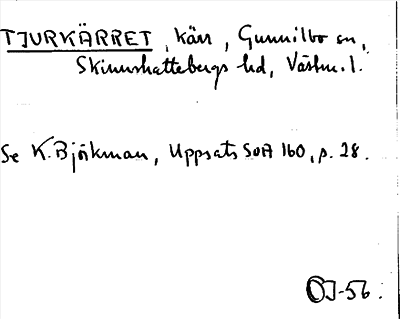 TJURKÄRRET, kärr, Gunnilbo sn,
Skinnskattebergs hd, Västm. l.
Se K. Björkman, Uppsats SOA 160, p. 28.
OJ-56.